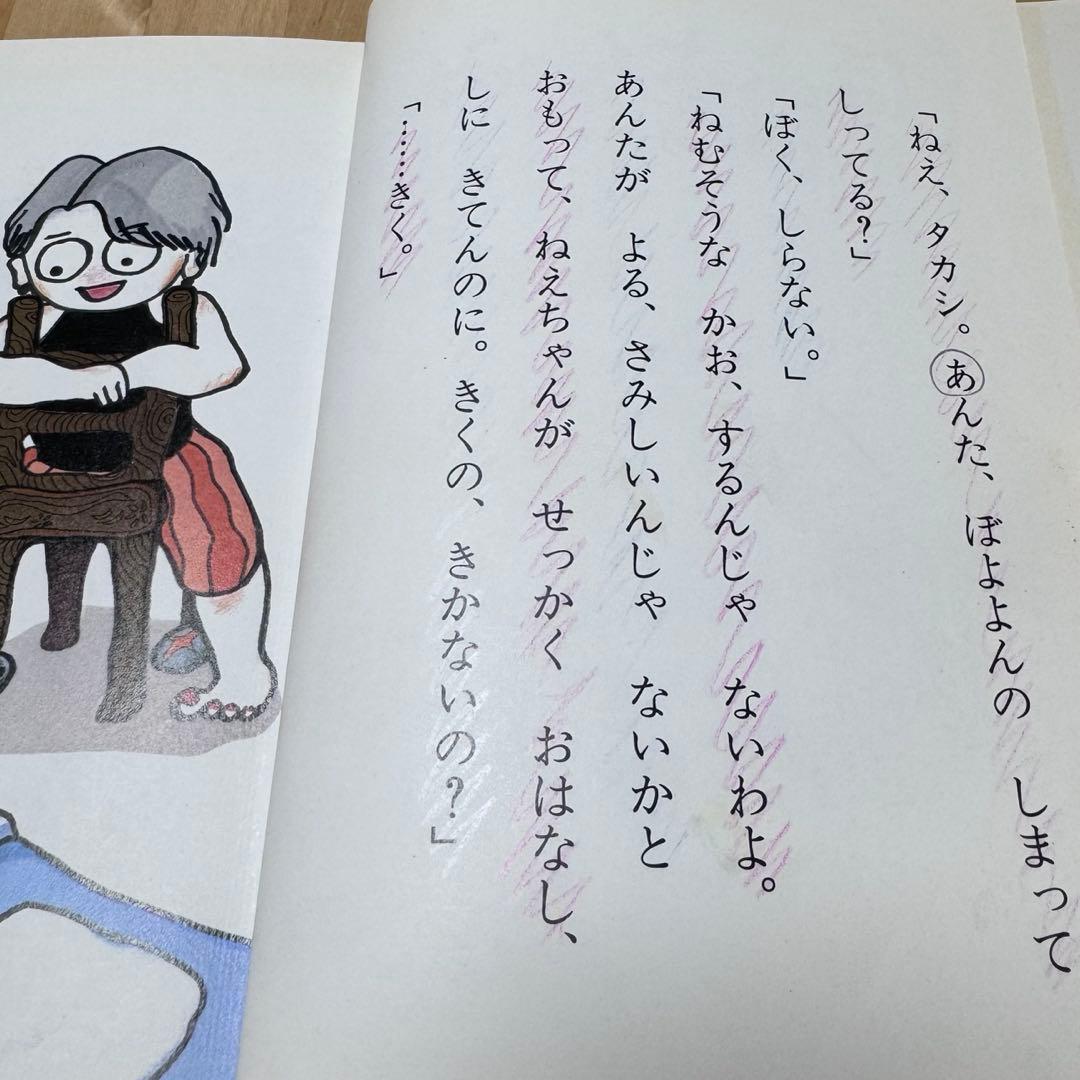 「ねえ、タカシ。あんた、ぼよよんの　しまって
しってる？」
「ぼく、しらない。」
「ねむそうな　かお、するんじゃ　ないわよ。
あんたが　よる、さみしいんじゃ　ないかと
おもって、ねえちゃんが　せっかく　おはなし、
しに　きてんのに。きくの、きかないの？」
「……きく。」